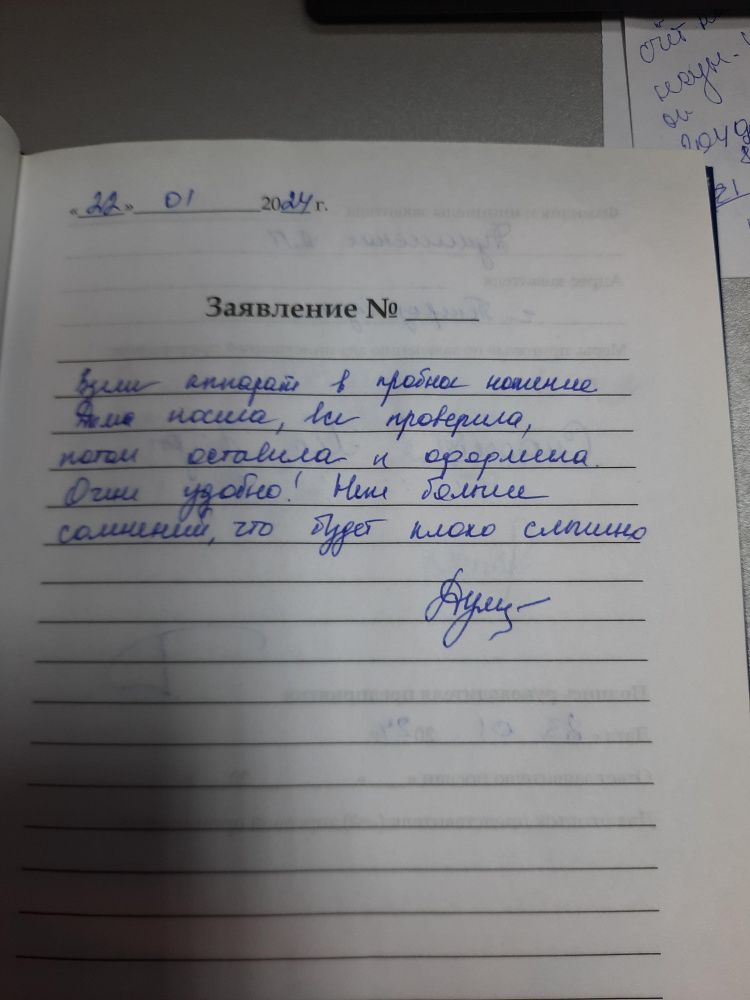 «22» 01 2024 г.
Заявление №
Взяли аппарат в пробное ношение.
Дома носила, все проверила,
потом оставила и оформила.
Очень удобно! Нет больше
сомнений, что будет плохо слышно